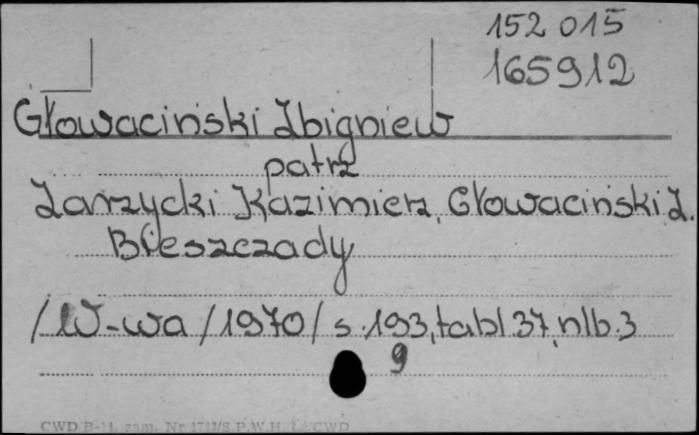 152 015
165912
Głowaciński Zbigniew
patrz
Zarzycki Kazimierz, Głowaciński Z.
Bieszczady
/W-wa/1970/s.193,tabl 37,nlb.3
9
CWD B-14. zam. Nr S.P.W.H. CWD